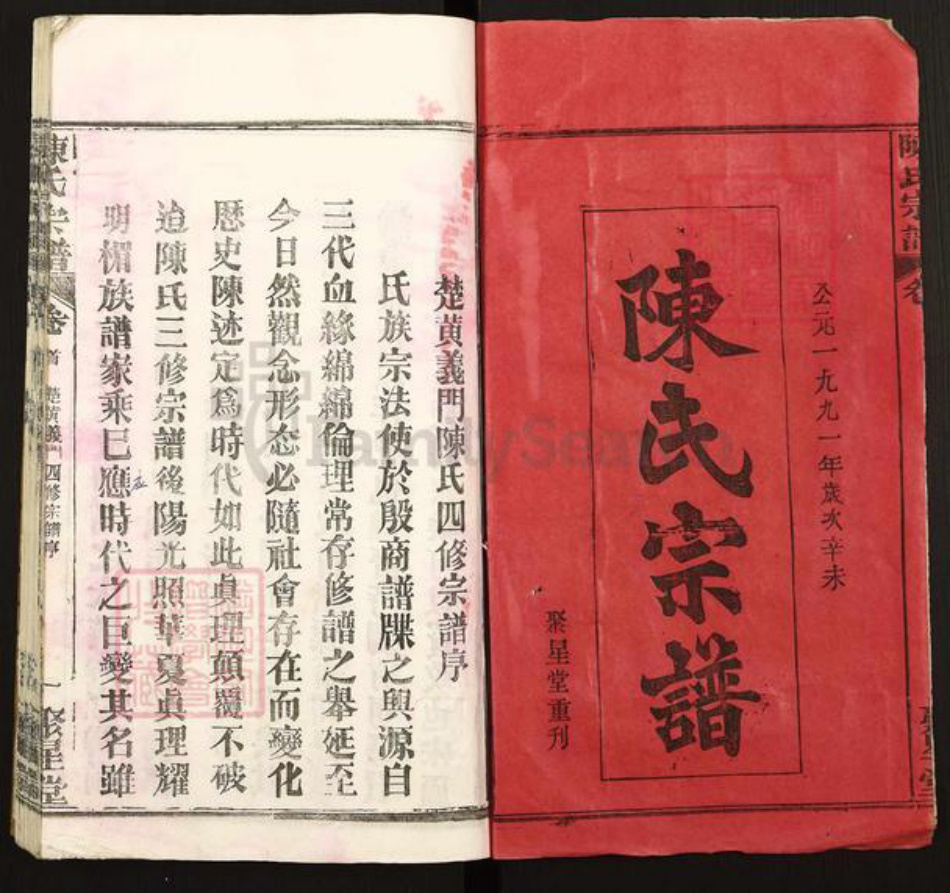 公元一九九一年歲次辛未
陳氏宗譜
聚星堂重刊
陳氏宗譜
楚黃義門陳氏四修宗譜序
氏族宗法使於殷商譜牒之興源自
三代血緣綿綿倫理常存修譜之舉延至
今日然觀念形态必隨社會存在而變化
歷史陳迹定爲時代如此眞理顛覆不破
迨陳氏三修宗譜後陽光照華夏眞理耀
明楣族譜家乘已應時代之巨變其名雖
陳氏宗譜 卷首 楚黃義門四修宗譜序 一 聚星堂
FamilySearch